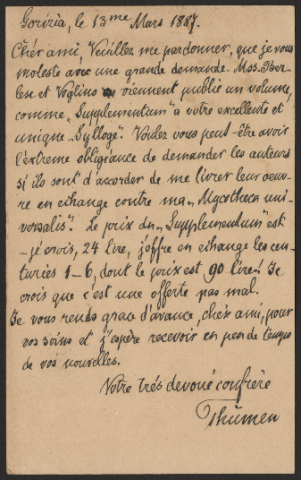 Gorizia, le 13me Mars 1887.
Chér ami, Veuillez me pardonner, que je vous
moleste avec une grande demande. Mss. Ber-
lese et Voglino viennent publié un volume,
comme „Supplementum" à votre excellente et
unique „Sylloge". Voulez vous peut-être avoir
l'extrème obligeance de demander les auteurs
si ils sont d'accorder de me livrer leur oeuv-
re en echange contre ma „Mycotheca uni-
versalis". Le prix du „Supplementum" est
- je crois, 24 lire, j'offre en echange les cen-
turiés 1-6, dont le prix est 90 lire! Je
crois que c'est une offerte pas mal.
Je vous rends grace d'avance, chér ami, pour
vos soins et j'espère recevoir en peu de temps
de vos nouvelles.
Votre trés devoué confrère
Thümen